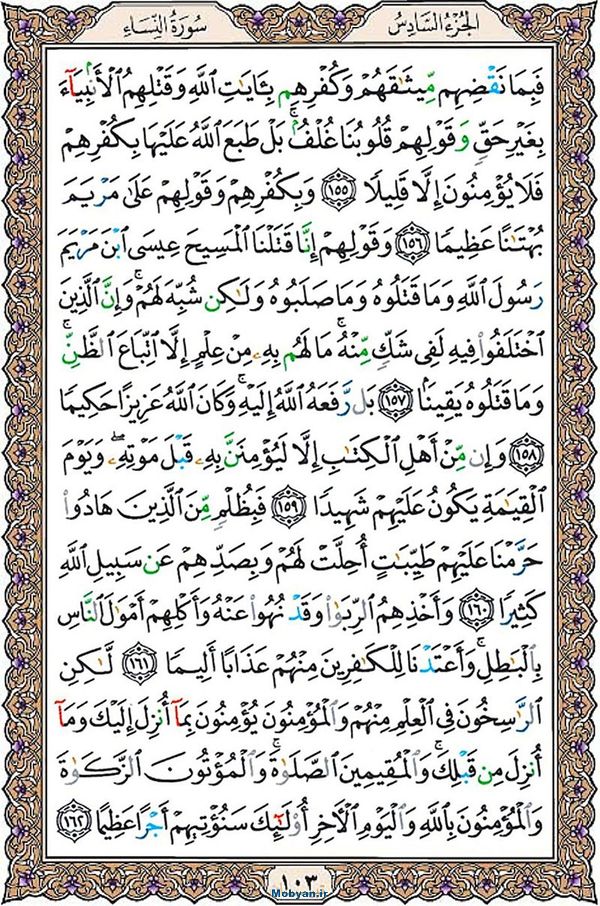 الجُزءُ السَّادِسُ
سُورَةُ النِّسَاءِ
فَبِمَا نَقْضِهِم مِّيثَٰقَهُمْ وَكُفْرِهِم بِـَٔايَٰتِ اللَّهِ وَقَتْلِهِمُ الْأَنۢبِيَآءَ
بِغَيْرِ حَقٍّ وَقَوْلِهِمْ قُلُوبُنَا غُلْفٌۢ ۚ بَلْ طَبَعَ اللَّهُ عَلَيْهَا بِكُفْرِهِمْ
فَلَا يُؤْمِنُونَ إِلَّا قَلِيلًا ١٥٥ وَبِكُفْرِهِمْ وَقَوْلِهِمْ عَلَىٰ مَرْيَمَ
بُهْتَٰنًا عَظِيمًا ١٥٦ وَقَوْلِهِمْ إِنَّا قَتَلْنَا الْمَسِيحَ عِيسَى ابْنَ مَرْيَمَ
رَسُولَ اللَّهِ وَمَا قَتَلُوهُ وَمَا صَلَبُوهُ وَلَٰكِن شُبِّهَ لَهُمْ ۚ وَإِنَّ الَّذِينَ
اخْتَلَفُوا فِيهِ لَفِى شَكٍّ مِّنْهُ ۚ مَا لَهُم بِهِۦ مِنْ عِلْمٍ إِلَّا اتِّبَاعَ الظَّنِّ ۚ
وَمَا قَتَلُوهُ يَقِينًۢا ١٥٧ بَل رَّفَعَهُ اللَّهُ إِلَيْهِ ۚ وَكَانَ اللَّهُ عَزِيزًا حَكِيمًا
١٥٨ وَإِن مِّنْ أَهْلِ الْكِتَٰبِ إِلَّا لَيُؤْمِنَنَّ بِهِۦ قَبْلَ مَوْتِهِۦ ۖ وَيَوْمَ
الْقِيَٰمَةِ يَكُونُ عَلَيْهِمْ شَهِيدًا ١٥٩ فَبِظُلْمٍ مِّنَ الَّذِينَ هَادُوا
حَرَّمْنَا عَلَيْهِمْ طَيِّبَٰتٍ أُحِلَّتْ لَهُمْ وَبِصَدِّهِمْ عَن سَبِيلِ اللَّهِ
كَثِيرًا ١٦٠ وَأَخْذِهِمُ الرِّبَوٰا وَقَدْ نُهُوا عَنْهُ وَأَكْلِهِمْ أَمْوَٰلَ النَّاسِ
بِالْبَٰطِلِ ۚ وَأَعْتَدْنَا لِلْكَٰفِرِينَ مِنْهُمْ عَذَابًا أَلِيمًا ١٦١ لَّٰكِنِ
الرَّٰسِخُونَ فِى الْعِلْمِ مِنْهُمْ وَالْمُؤْمِنُونَ يُؤْمِنُونَ بِمَآ أُنزِلَ إِلَيْكَ وَمَآ
أُنزِلَ مِن قَبْلِكَ ۚ وَالْمُقِيمِينَ الصَّلَوٰةَ ۚ وَالْمُؤْتُونَ الزَّكَوٰةَ
وَالْمُؤْمِنُونَ بِاللَّهِ وَالْيَوْمِ الْـَٔاخِرِ أُولَٰٓئِكَ سَنُؤْتِيهِمْ أَجْرًا عَظِيمًا ١٦٢
١٠٣
Mobyan.ir